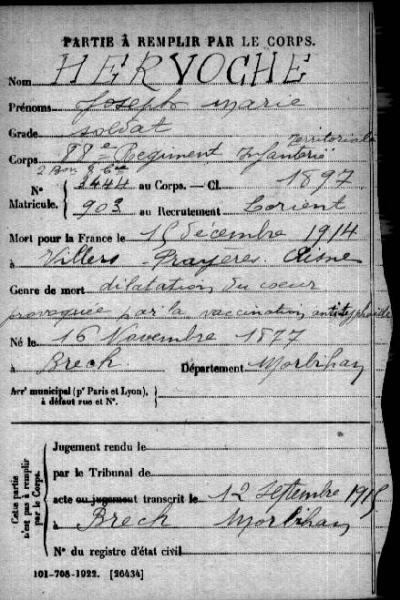 PARTIE À REMPLIR PAR LE CORPS.
Nom HERVOCHE
Prénoms Joseph Marie
Grade soldat
Territorial
Corps 88e Régiment Infanterie
2 Bon 8 Cie
N° 3444 au Corps. — Cl. 1897
Matricule. 903 au Recrutement Lorient
Mort pour la France le 15 décembre 1914
à Villers - Prayères Aisne
Genre de mort dilatation du coeur
provoquée par la vaccination antityphoïde
Né le 16 Novembre 1877
à Brech Département Morbihan
Arr' municipal (p' Paris et Lyon),
à défaut rue et N°.
Cette partie n'est pas à remplir par le Corps.
Jugement rendu le
par le Tribunal de
acte ou jugement transcrit le 12 septembre 1915
à Brech Morbihan
N° du registre d'état civil
101-708-1922. [26434]